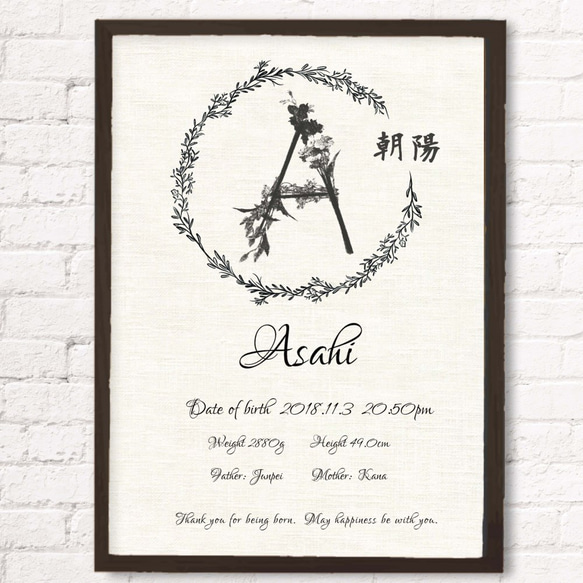 A
朝陽
Asahi
Date of birth 2018.11.3 20:50pm
Weight 2880g Height 49.0cm
Father: Junpei Mother: Kana
Thank you for being born. May happiness be with you.